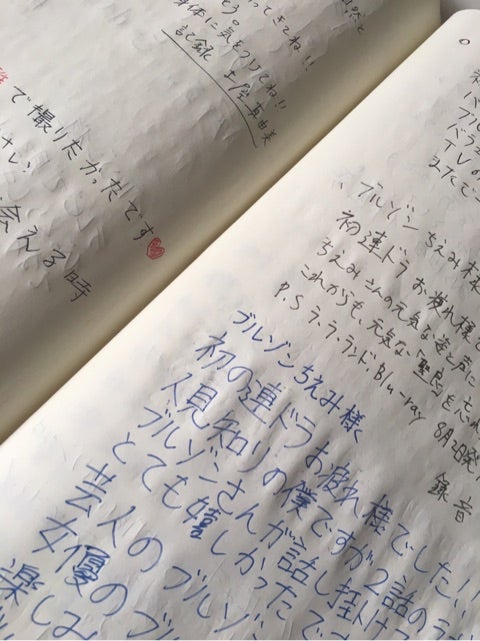 然と
ってきてね!!
身体に気をつけてね!!
記録 土屋真由美
で撮りたかったです
会える時
TVの
ブルゾンちえみ様
初の連ドラお疲れ様で
ちえみさんの元気な姿と声に
これからも、元気な、
P.S ラ・ラ・ランド、Blu-ray 8月2日発
録音
ブルゾンちえみ様
初の連ドラお疲れ様でした!!
人見知りの僕ですが2話のラ
ブルゾンさんが話し掛け
とても嬉しかったで
芸人のブルゾ
女優のブル
楽しみ